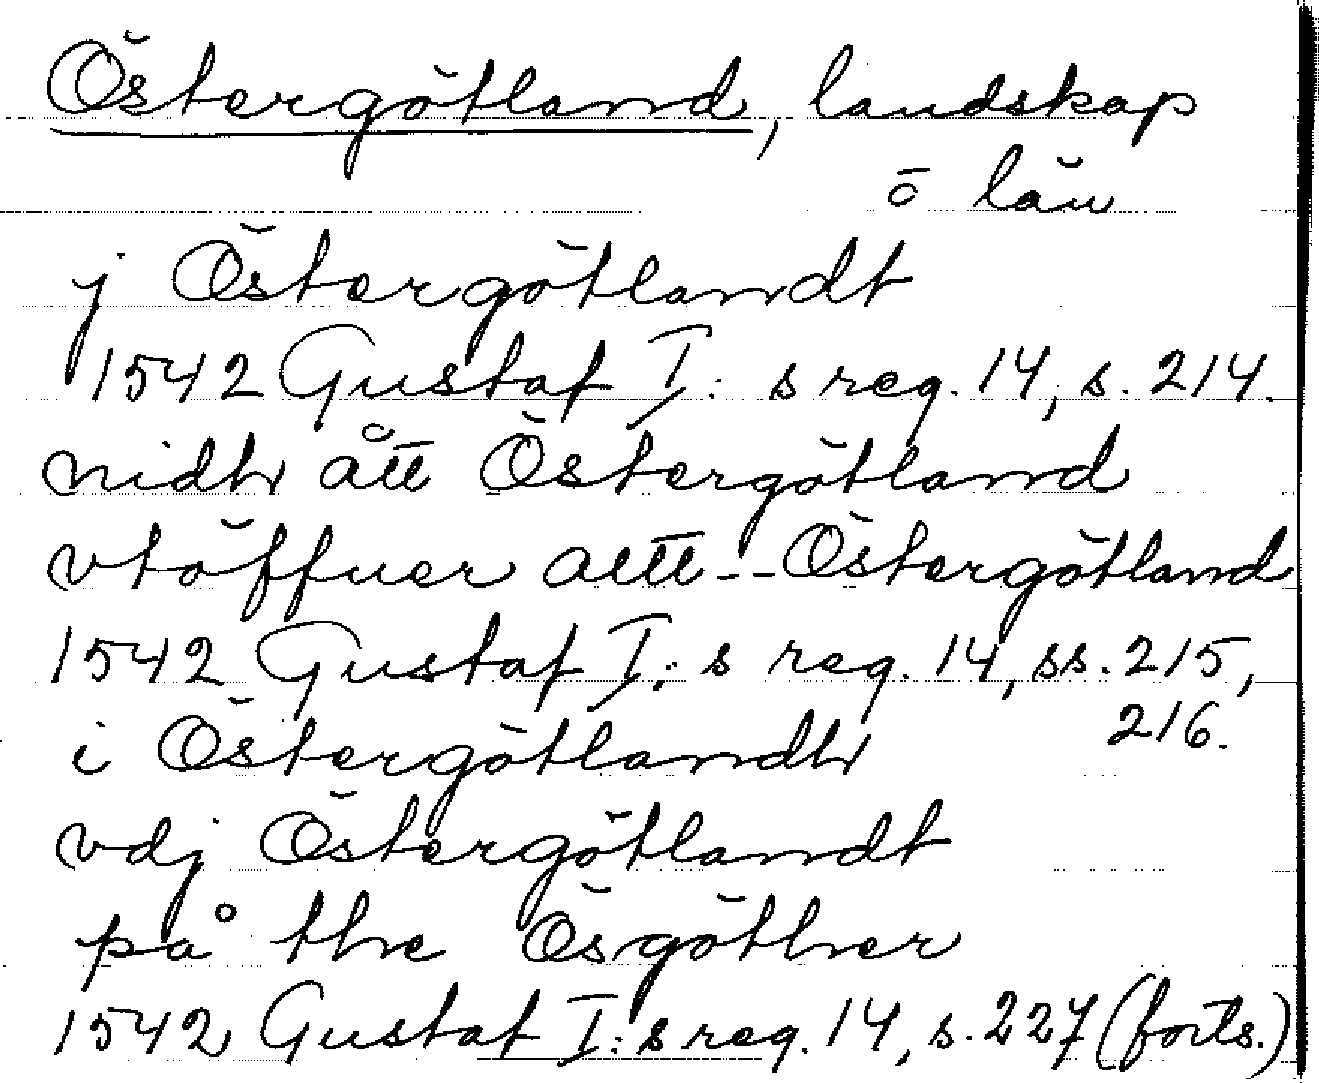 Östergötland, landskap
o län
j Östergötlandt
1542 Gustaf I: s reg. 14, s. 214.
nidh ått Östergötland
vtöffuer altt -- Östergötland
1542 Gustaf I: s reg. 14, ss. 215,
216.
i Östergötlandh
vdj Östergötlandt
på the Ösgöther
1542 Gustaf I: s reg. 14, s. 227 (forts.)